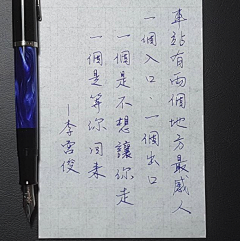 車站有兩個地方最感人
一個入口．一個出口
一個是不想讓你走
一個是等你回来
—李宮俊